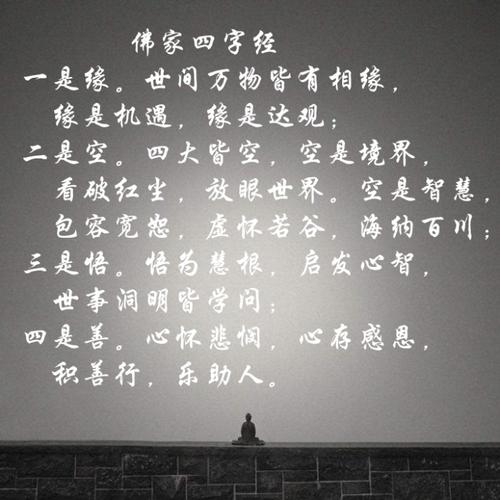 佛家四字经
一是缘。世间万物皆有相缘，
缘是机遇，缘是达观；
二是空。四大皆空，空是境界，
看破红尘，放眼世界。空是智慧，
包容宽恕，虚怀若谷，海纳百川；
三是悟。悟为慧根，启发心智，
世事洞明皆学问；
四是善。心怀悲悯，心存感恩，
积善行，乐助人。